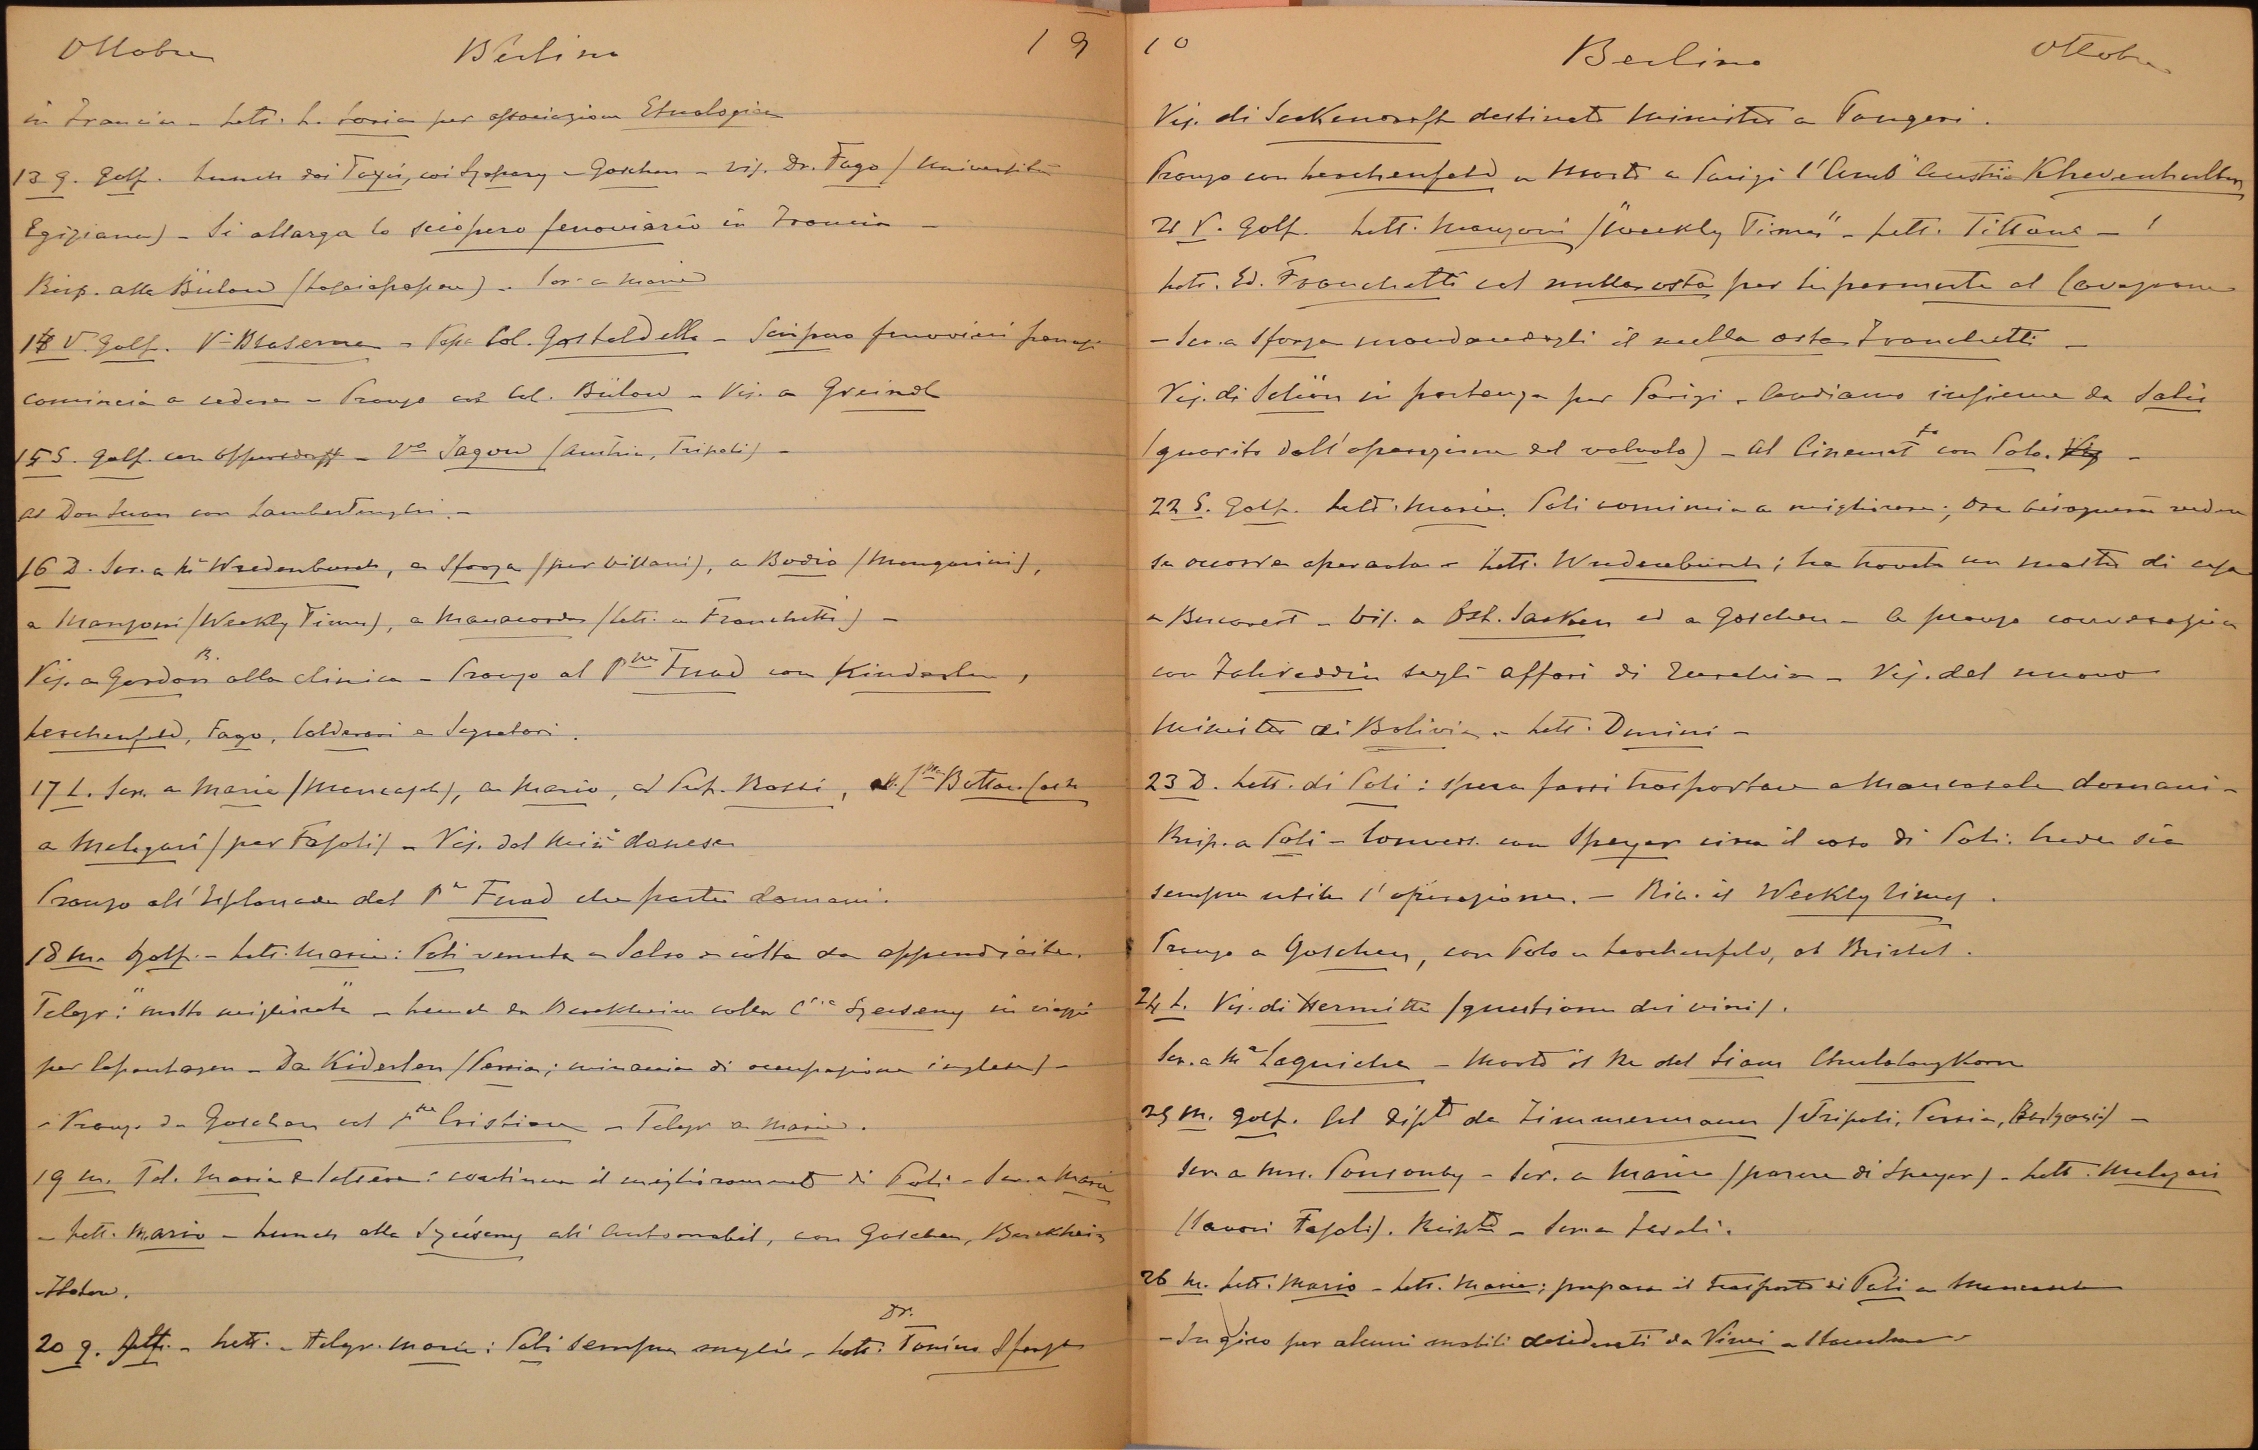 Ottobre Berlino 19
in Francia - Lett. L. Loria per associazione Etnologica
13 g. Golf. Lunch dai Taxis, coi Szapary - Goschen - vis. Dr. Fago (Università
Egiziana) - Si allarga lo sciopero ferroviario in Francia -
Risp. alla Bülow - Scr. a Maria
14 V. Golf. V. Blaserna - Col. Gastaldello - Sciopero ferrovieri
comincia a cedere - Pranzo col Col. Bülow - Vis. a Greindl
15 S. Golf. con Oppersdorff - Jagow (Austria, Tripoli) -
al Don Juan con Lambertenghi. -
16 D. Scr. a Wredenburch, a Sforza (per Villani), a Bodio (Mengarini),
a Manzoni (Weekly Times), a Manacorda (Lett. a Franchetti) -
Vis. a Gordon B. alla clinica - Pranzo al Pse Fuad con Kinderlen,
Lerchenfeld, Fago, Calderari e Segretari.
17 L. Scr. a Maria, a Mario, al Rossi,
a Melegari (per Fasoli) - Vis. del Minº danese
Pranzo all'Esplanade del Pe Fuad che parte domani.
18 M. Golf. - Lett. Maria: Poli venuta a Salso e colta da appendicite.
Telegr: "molto migliorata" - Lunch da Berckheim colla Cssa Szecseny in viaggio
per Copenhagen - Da Kiderlen (Persia; minaccia di occupazione inglese) -
- Pranzo da Goschen col Cristian - Telegr a Maria.
19 M. Tel. Maria e lettera: continua il miglioramento di Poli - Scr. a Maria
- Lett. Mario - Lunch alla Szécseny all'Automobil, con Goschen, Berckheim
Flotow.
20 g. Golf. - Lett. - Telegr. Maria: Poli sempre meglio - Lett. Dr. Tonino Sforza
10 Berlino Ottobre
Vis. di Seckendorff destinato ministro a Tangeri.
Pranzo con Lerchenfeld - Morto a Parigi l'Amb. Austria Khevenhüller
21 V. Golf. Lett. Manzoni ("Weekly Times" - Lett. Tittoni -
Lett. Ed. Franchetti col nulla osta per la permuta al
- Scr. a Sforza mandandogli il nulla osta Franchetti -
Vis. di Schön in partenza per Parigi - Andiamo insieme da Salis
(guarito dall'operazione del volvolo) - Al Cinematfo con Polo. -
22 S. Golf. Lett. Maria. Poli comincia a migliorare; ora bisognerà vedere
se occorra operarla - Lett. Wredenburch; ha trovato un mastro di casa
a Bucarest - Vis. a Ost. Sacken ed a Goschen - A pranzo conversazione
con Zahireddin sugli affari di Turchia - Vis. del nuovo
Ministro di Bolivia - Lett. Donini -
23 D. Lett. di Poli: spera farsi trasportare a Mancasale domani -
Risp. a Poli - Convers. con Speyer circa il caso di Poli. Crede sia
sempre utile l'operazione. - Ric. il Weekly Times.
Pranzo a Goschen, con Polo e Lerchenfeld, al Bristol.
24 L. Vis. di Hermitte (questione dei vini).
Scr. a Mse Laguiche - Morto il Re del Siam Chulalongkorn
25 M. Golf. Al Distº da Zimmermann (Tripoli, Persia, Bulgaria) -
Scr. a Mrs. Ponsonby - Scr. a Maria (parere di Speyer) - Lett. Melegari
(lavori Fasoli). Rispto - Scr. a Fasoli.
26 M. Lett. Mario - Lett. Maria; prepara il trasporto di Poli a Mancasale
- In giro per alcuni mobili desiderati da Vinci